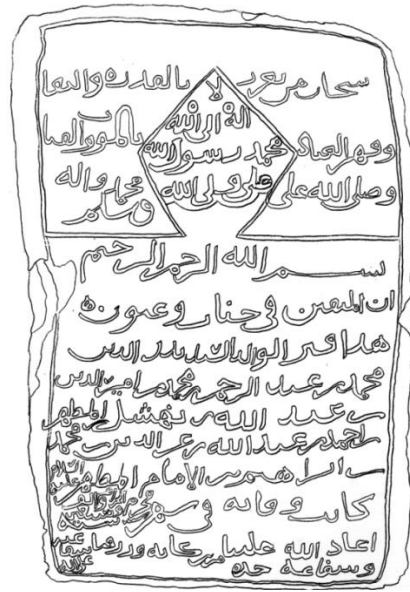 سبحان من تعزز بالقدره والبقا
وقهر العباد بالموت والفنا
وصلى الله على محمد واله
وسلم
لا
اله الا الله
محمد رسول الله
علي ولي الله
بسم الله الرحمن الرحيم
ان المتقين في جنات وعيون
هذا قبر الوالد الدين
محمد بن عبد الرحمن بن محمد بن امير الدين
بن عبد الله بن نهشل بن المطهر
بن احمد بن عبد الله بن عز الدين بن محمد
بن ابراهيم بن الامام المطهر
كانت وفاته في شهر
اعاد الله علينا من بركاته
وشفاعة جده